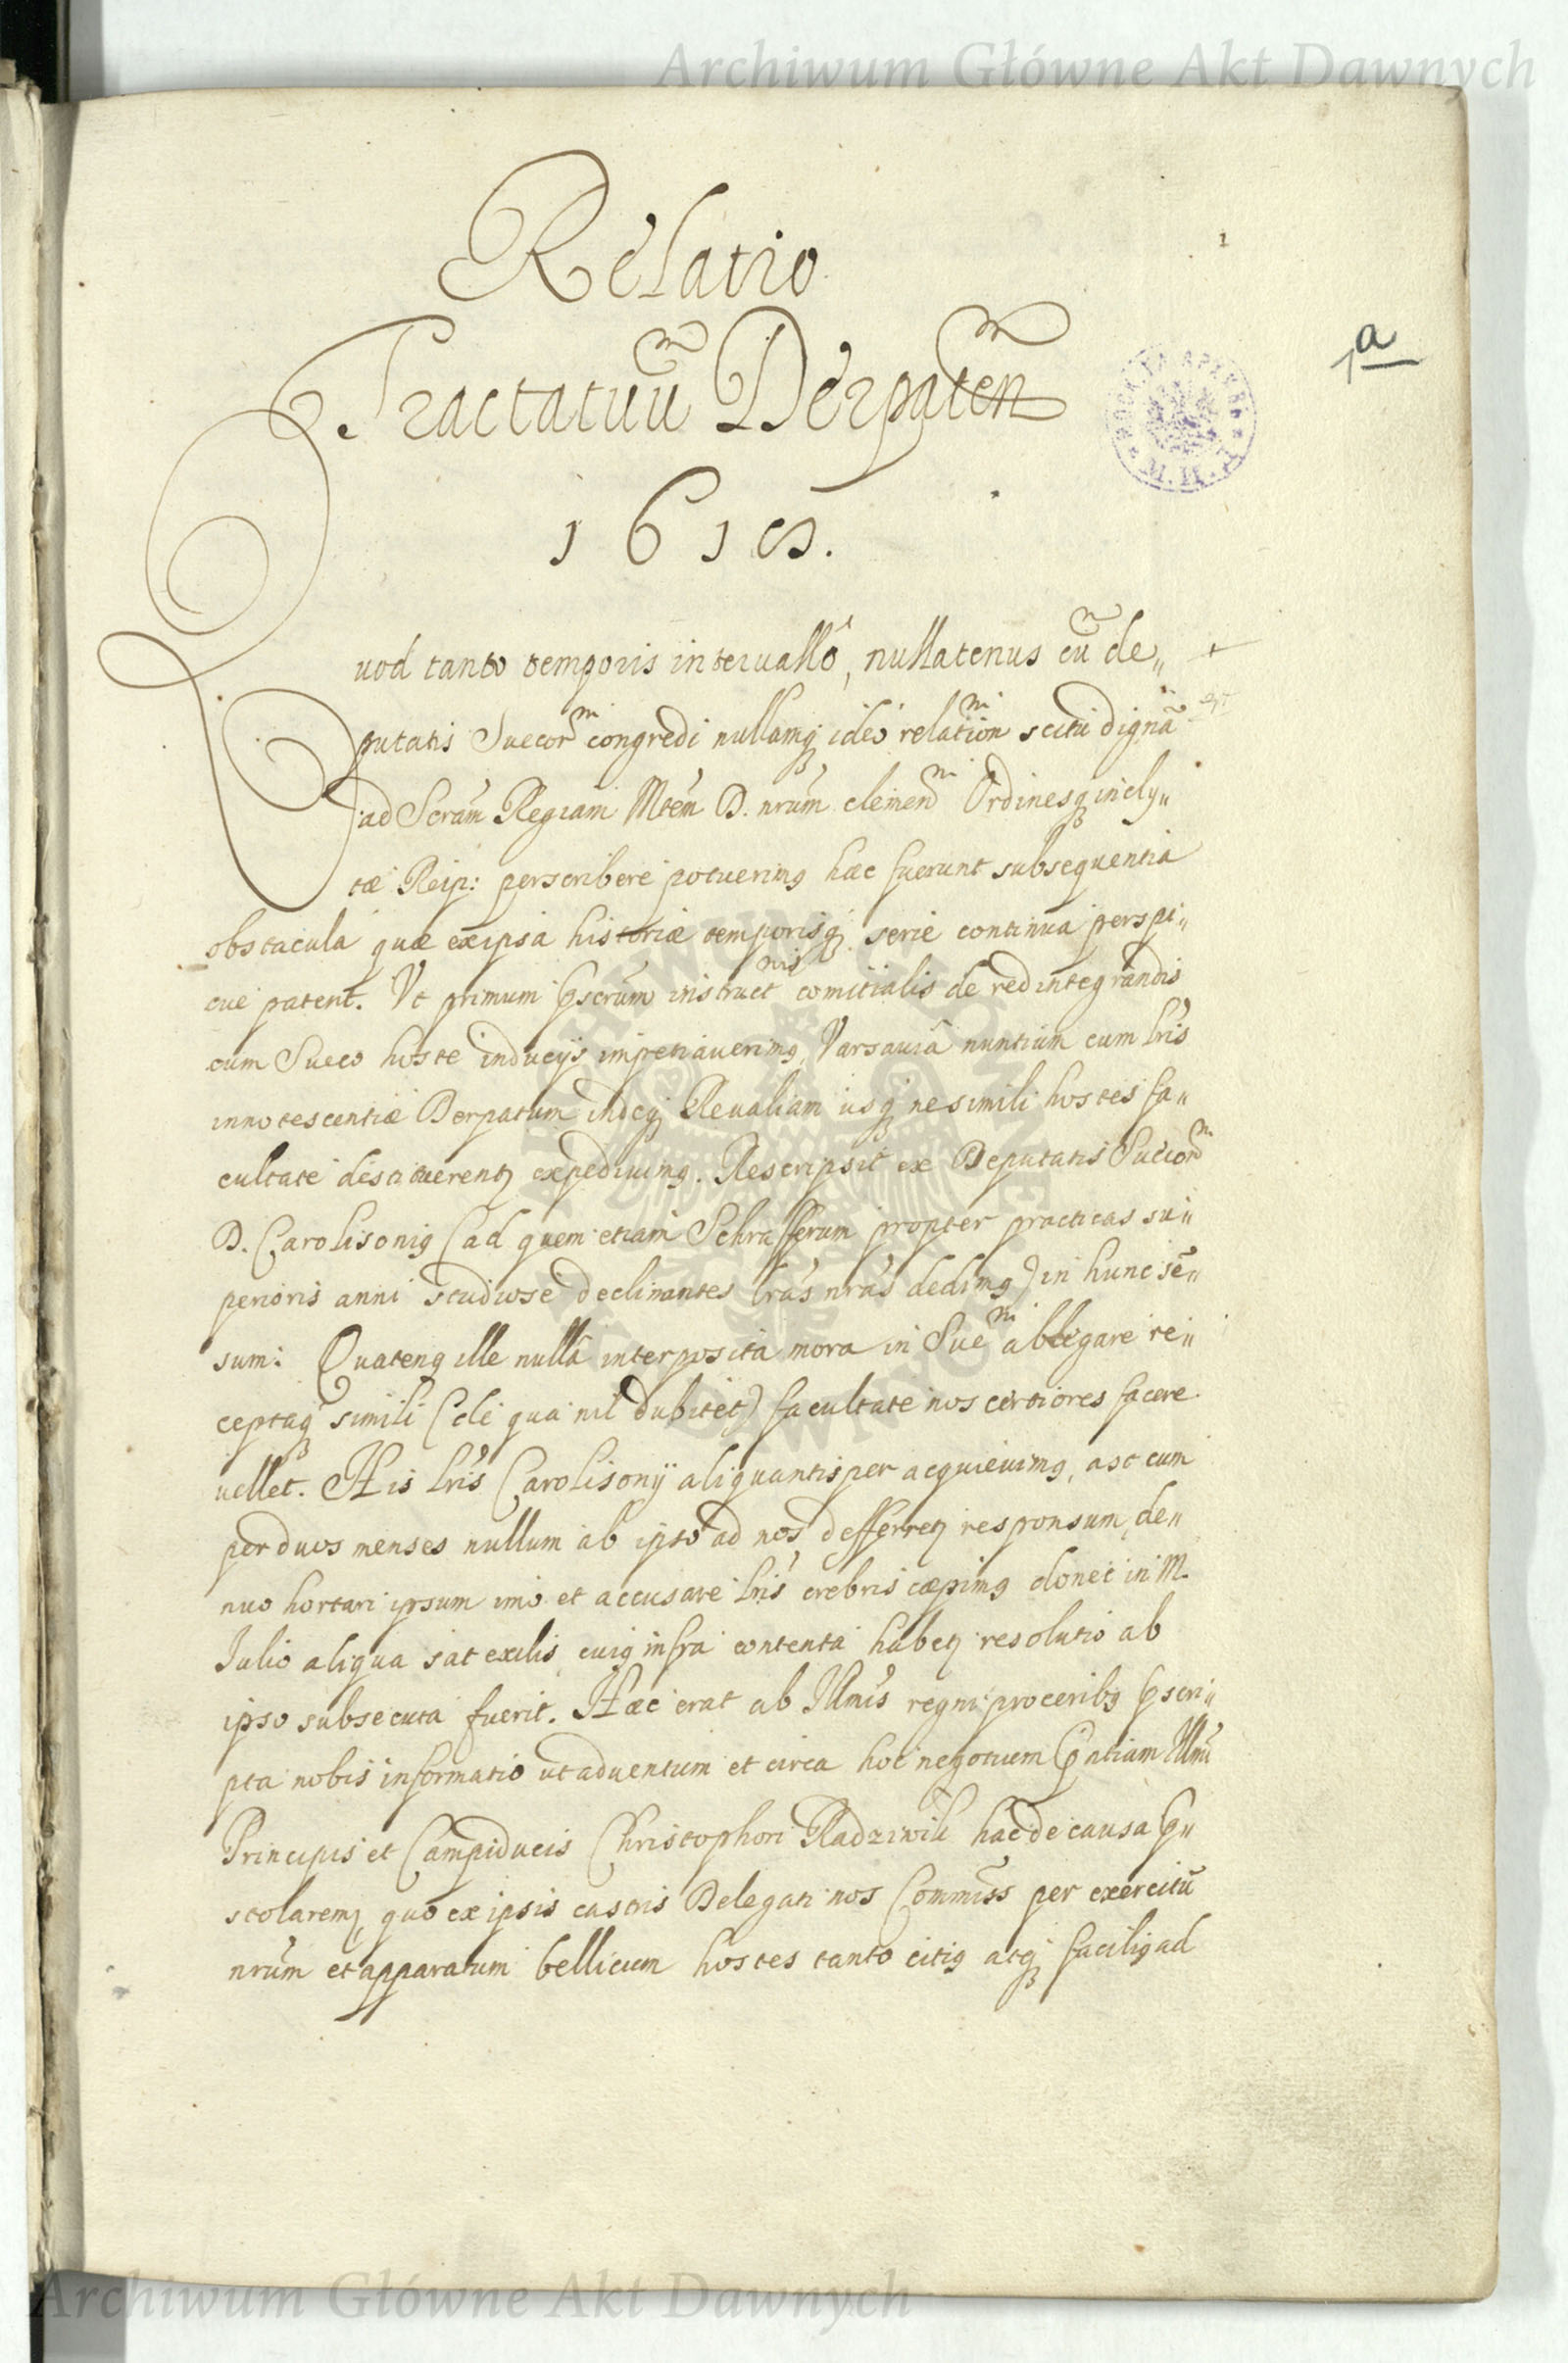 Archiwum Główne Akt Dawnych
1
Relatio
Tractatuũ Derpaten
a
1
1618.
Quod tanto temporis interuallô, nullatenus cũ de„
putatis Suecorm congredi nullamq ideò relationm scitu dignã
ad Scram Regiam Mtem D. nrum clemenm Ordinesq incly„
tæ Reip: perscribere potuerimq hæc fuerunt subsequentia
obstacula quæ ex ipsa historiæ temporisq serie continua perspi„
cue patent. Vt primum pscrum instructnis comitialis de redintegrandis
cum Sueco hoste inducijs impetrauerimq, Varsauiâ nuntium cum lris
innotescentiæ Derpatum indeq Reualiam usq ne simili hostes fa„
cultate destituerent expediuimq. Rescripsit ex Deputatis Suecorm
D. Carolisoniq (ad quem etiam Schrafferum propter practicas su„
perioris anni studiose declinantes lras nras dedimq) in hunc sẽ„
sum: Quatenq ille nullâ interposita mora in Suem ablegare re„
ceptaq simili (de qua nil dubitet) facultate nos certiores facere
uellet. His lris Carolisonij aliquantisper acquieuimq, ast cum
per duos menses nullum ab ipso ad nos deferret responsum, de„
nuo hortari ipsum imò et accusare lris crebris cæpimq donec in M.
Julio aliqua sat exilis cuiq infra contenta habet resolutio ab
ipso subsecuta fuerit. Hæc erat ab Illmis regni proceribq pscri„
pta nobis informatio ut aduentum et circa hoc negotium pntiam Illmi
Principis et Campiducis Christophori Radziwili hac de causa p„
stolarem, quo ex ipsis castris Delegati nos Commiss per exercitũ
nrum et apparatum bellicum hostes tanto citiq atq faciliq ad
Archiwum Główne Akt Dawnych